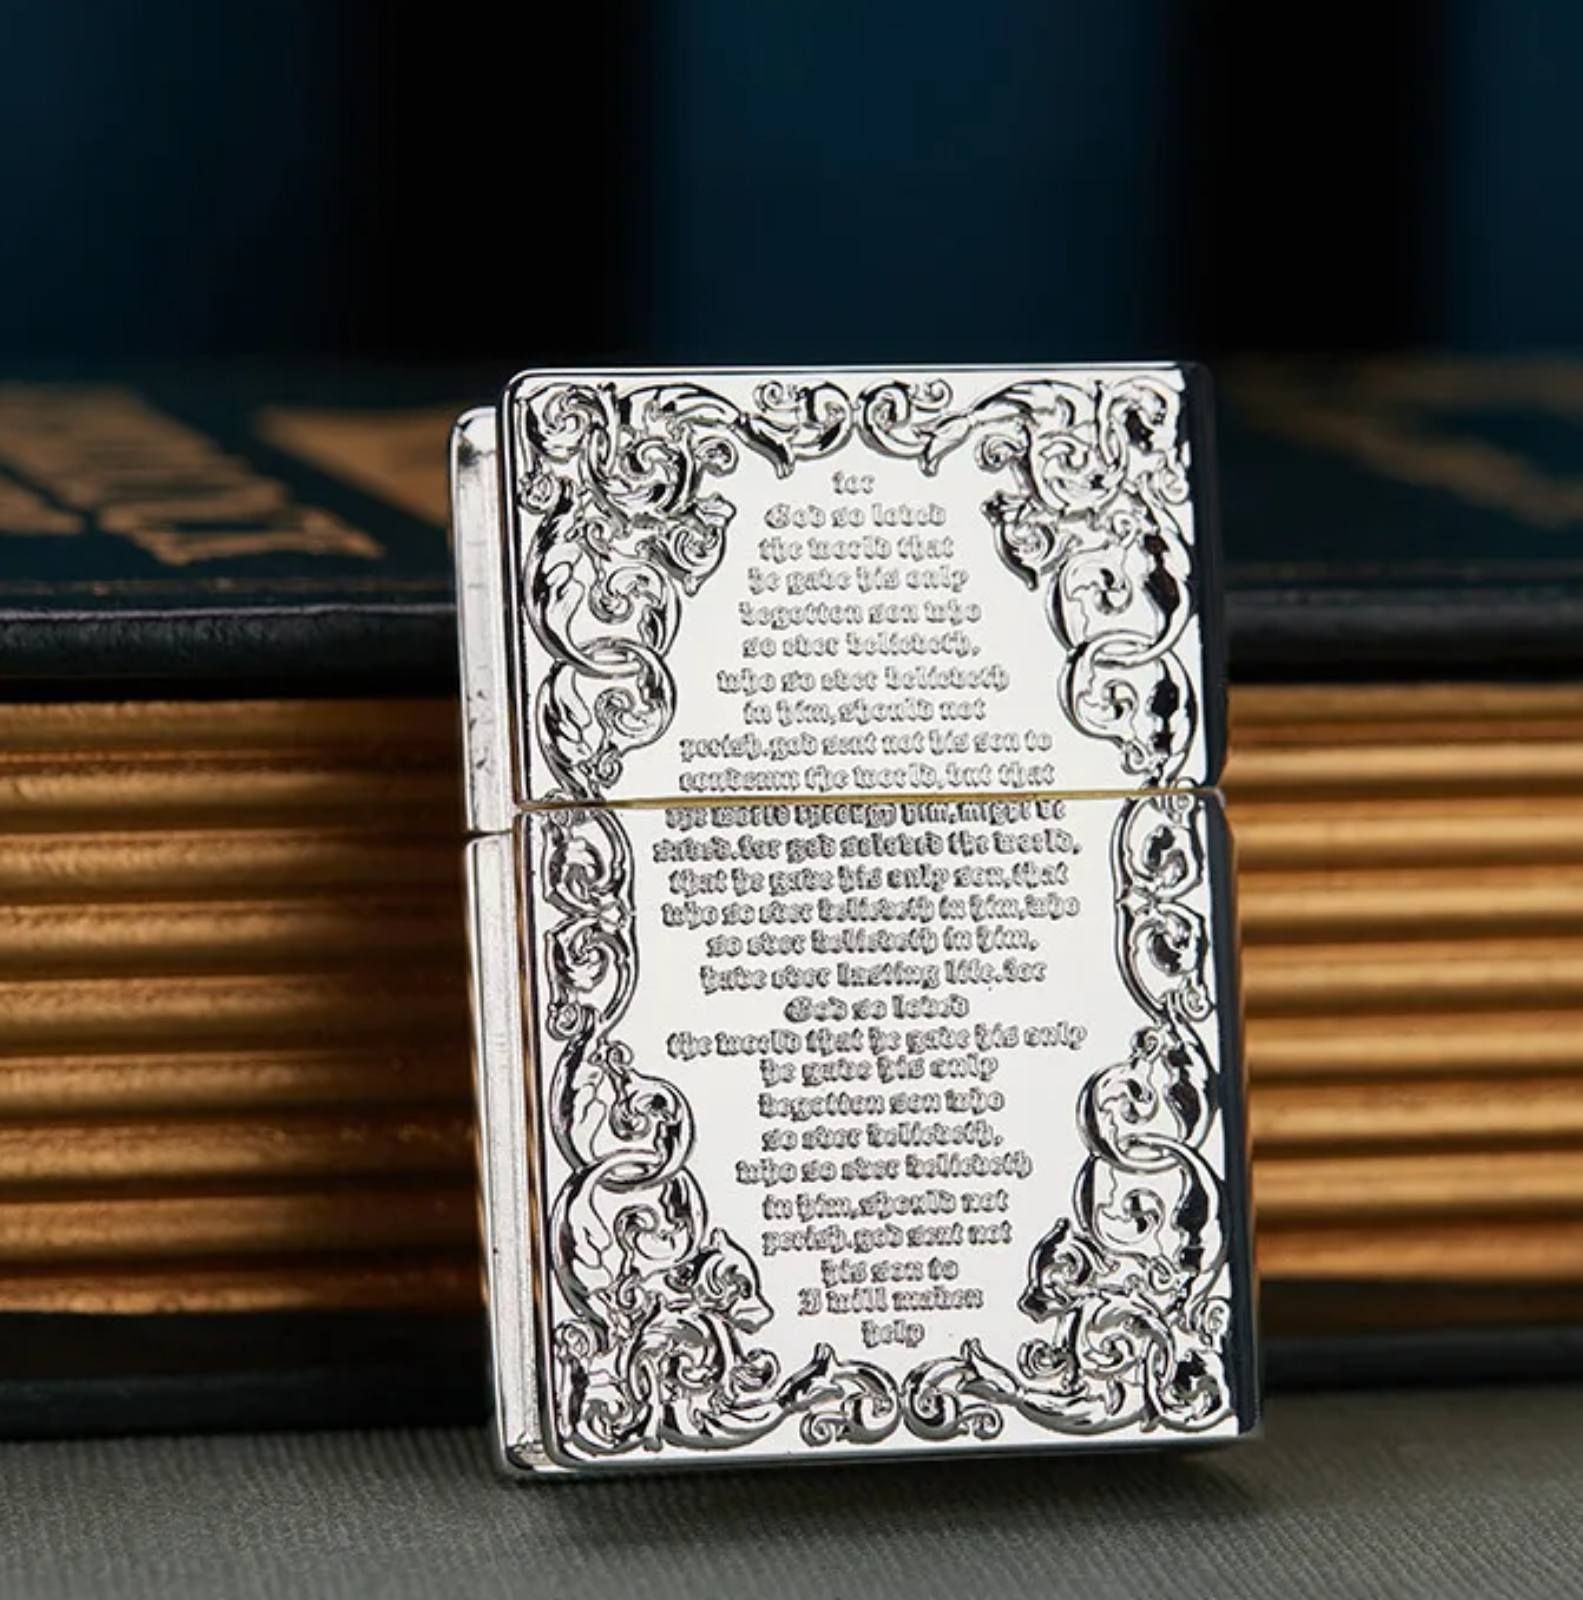 for
God so loved
the world that
he gave his only
begotten son who
so ever believeth,
who so ever believeth
in him,should not
perish.god sent not his son to
condemn the world,but that
the world through him,might be
saved.for god soloved the world,
that he gave his only son,that
who so ever believeth in him,who
so ever believeth in him,
have ever lasting life.for
God so loved
the world that he gave his only
he gave his only
begotten son who
so ever believeth,
who so ever believeth
in him,should not
perish.god sent not
his son to
I will
help